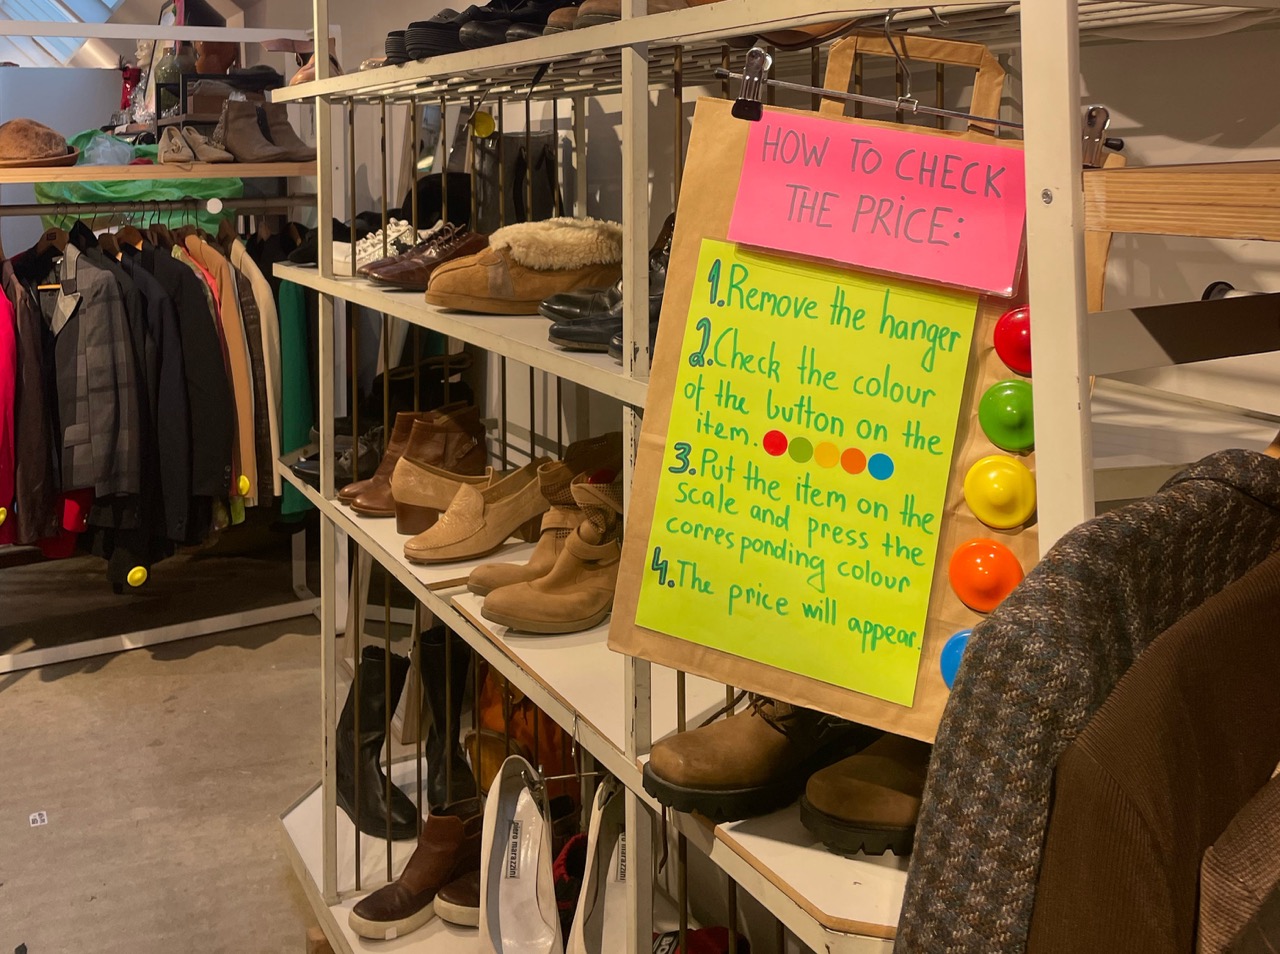 HOW TO CHECK
THE PRICE:
1. Remove the hanger
2. Check the colour
of the button on the
item.
3. Put the item on the
scale and press the
corresponding colour
4. The price will appear.
piero marazzini